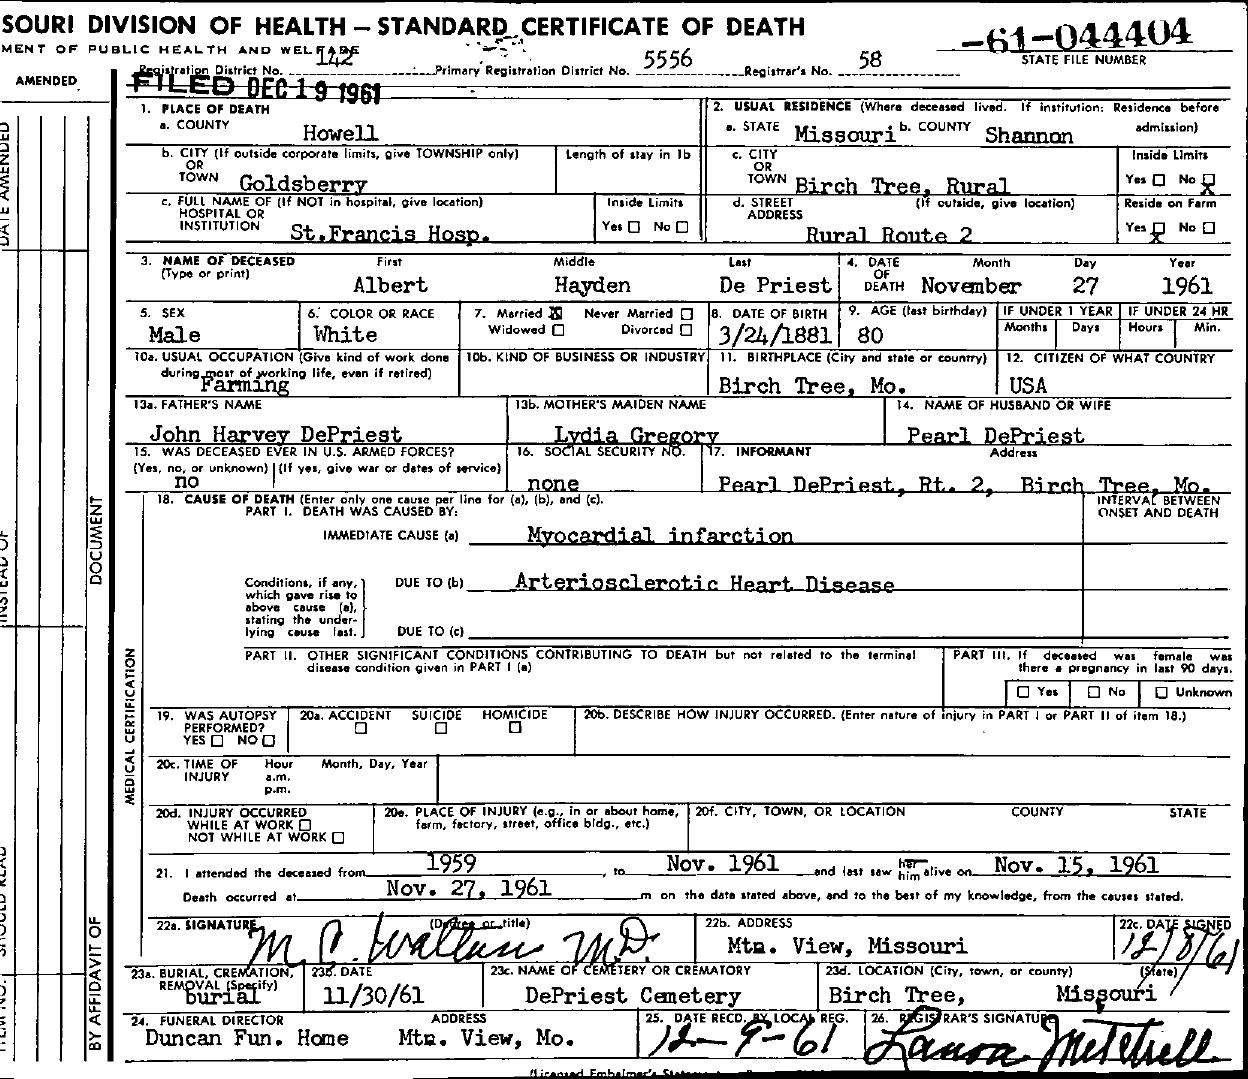 SOURI DIVISION OF HEALTH — STANDARD CERTIFICATE OF DEATH
-61-044404
MENT OF PUBLIC HEALTH AND WELFARE
STATE FILE NUMBER
Registration District No. 142 Primary Registration District No. 5556 Registrar's No. 58
AMENDED
FILED DEC 19 1961
1. PLACE OF DEATH
a. COUNTY Howell
2. USUAL RESIDENCE (Where deceased lived. If institution: Residence before admission)
a. STATE Missouri b. COUNTY Shannon
b. CITY (If outside corporate limits, give TOWNSHIP only) OR TOWN Goldsberry
Length of stay in 1b
c. CITY OR TOWN Birch Tree, Rural
Inside Limits Yes ☐ No ☒
c. FULL NAME OF (If NOT in hospital, give location) HOSPITAL OR INSTITUTION St.Francis Hosp.
Inside Limits Yes ☐ No ☐
d. STREET ADDRESS (If outside, give location) Rural Route 2
Reside on Farm Yes ☒ No ☐
3. NAME OF DECEASED (Type or print) First Middle Last
Albert Hayden De Priest
4. DATE OF DEATH Month Day Year
November 27 1961
5. SEX Male
6. COLOR OR RACE White
7. Married ☒ Never Married ☐ Widowed ☐ Divorced ☐
8. DATE OF BIRTH 3/24/1881
9. AGE (last birthday) 80
IF UNDER 1 YEAR Months Days
IF UNDER 24 HR Hours Min.
10a. USUAL OCCUPATION (Give kind of work done during most of working life, even if retired) Farming
10b. KIND OF BUSINESS OR INDUSTRY
11. BIRTHPLACE (City and state or country) Birch Tree, Mo.
12. CITIZEN OF WHAT COUNTRY USA
13a. FATHER'S NAME John Harvey DePriest
13b. MOTHER'S MAIDEN NAME Lydia Gregory
14. NAME OF HUSBAND OR WIFE Pearl DePriest
15. WAS DECEASED EVER IN U.S. ARMED FORCES? (Yes, no, or unknown) (If yes, give war or dates of service) no
16. SOCIAL SECURITY NO. none
17. INFORMANT Address
Pearl DePriest, Rt. 2, Birch Tree, Mo.
18. CAUSE OF DEATH (Enter only one cause per line for (a), (b), and (c).
PART I. DEATH WAS CAUSED BY:
INTERVAL BETWEEN ONSET AND DEATH
IMMEDIATE CAUSE (a) Myocardial infarction
Conditions, if any, which gave rise to above cause (a), stating the underlying cause last.
DUE TO (b) Arteriosclerotic Heart Disease
DUE TO (c)
PART II. OTHER SIGNIFICANT CONDITIONS CONTRIBUTING TO DEATH but not related to the terminal disease condition given in PART I (a)
PART III. If deceased was female was there a pregnancy in last 90 days.
☐ Yes ☐ No ☐ Unknown
19. WAS AUTOPSY PERFORMED? YES ☐ NO ☐
20a. ACCIDENT ☐ SUICIDE ☐ HOMICIDE ☐
20b. DESCRIBE HOW INJURY OCCURRED. (Enter nature of injury in PART I or PART II of item 18.)
20c. TIME OF INJURY Hour a.m. p.m. Month, Day, Year
20d. INJURY OCCURRED WHILE AT WORK ☐ NOT WHILE AT WORK ☐
20e. PLACE OF INJURY (e.g., in or about home, farm, factory, street, office bldg., etc.)
20f. CITY, TOWN, OR LOCATION COUNTY STATE
21. I attended the deceased from 1959, to Nov. 1961 and last saw her him alive on Nov. 15, 1961
Death occurred at Nov. 27, 1961 m on the date stated above, and to the best of my knowledge, from the causes stated.
22a. SIGNATURE (Degree or title) M. C. M.D.
22b. ADDRESS Mtn. View, Missouri
22c. DATE SIGNED 12/8/61
23a. BURIAL, CREMATION, REMOVAL (Specify) burial
23b. DATE 11/30/61
23c. NAME OF CEMETERY OR CREMATORY DePriest Cemetery
23d. LOCATION (City, town, or county) (State) Birch Tree, Missouri
24. FUNERAL DIRECTOR ADDRESS
Duncan Fun. Home Mtn. View, Mo.
25. DATE RECD. BY LOCAL REG. 12-9-61
26. REGISTRAR'S SIGNATURE Laura Mitchell
DATE AMENDED
INSTEAD OF
DOCUMENT
MEDICAL CERTIFICATION
ITEM NO. SHOULD READ
BY AFFIDAVIT OF